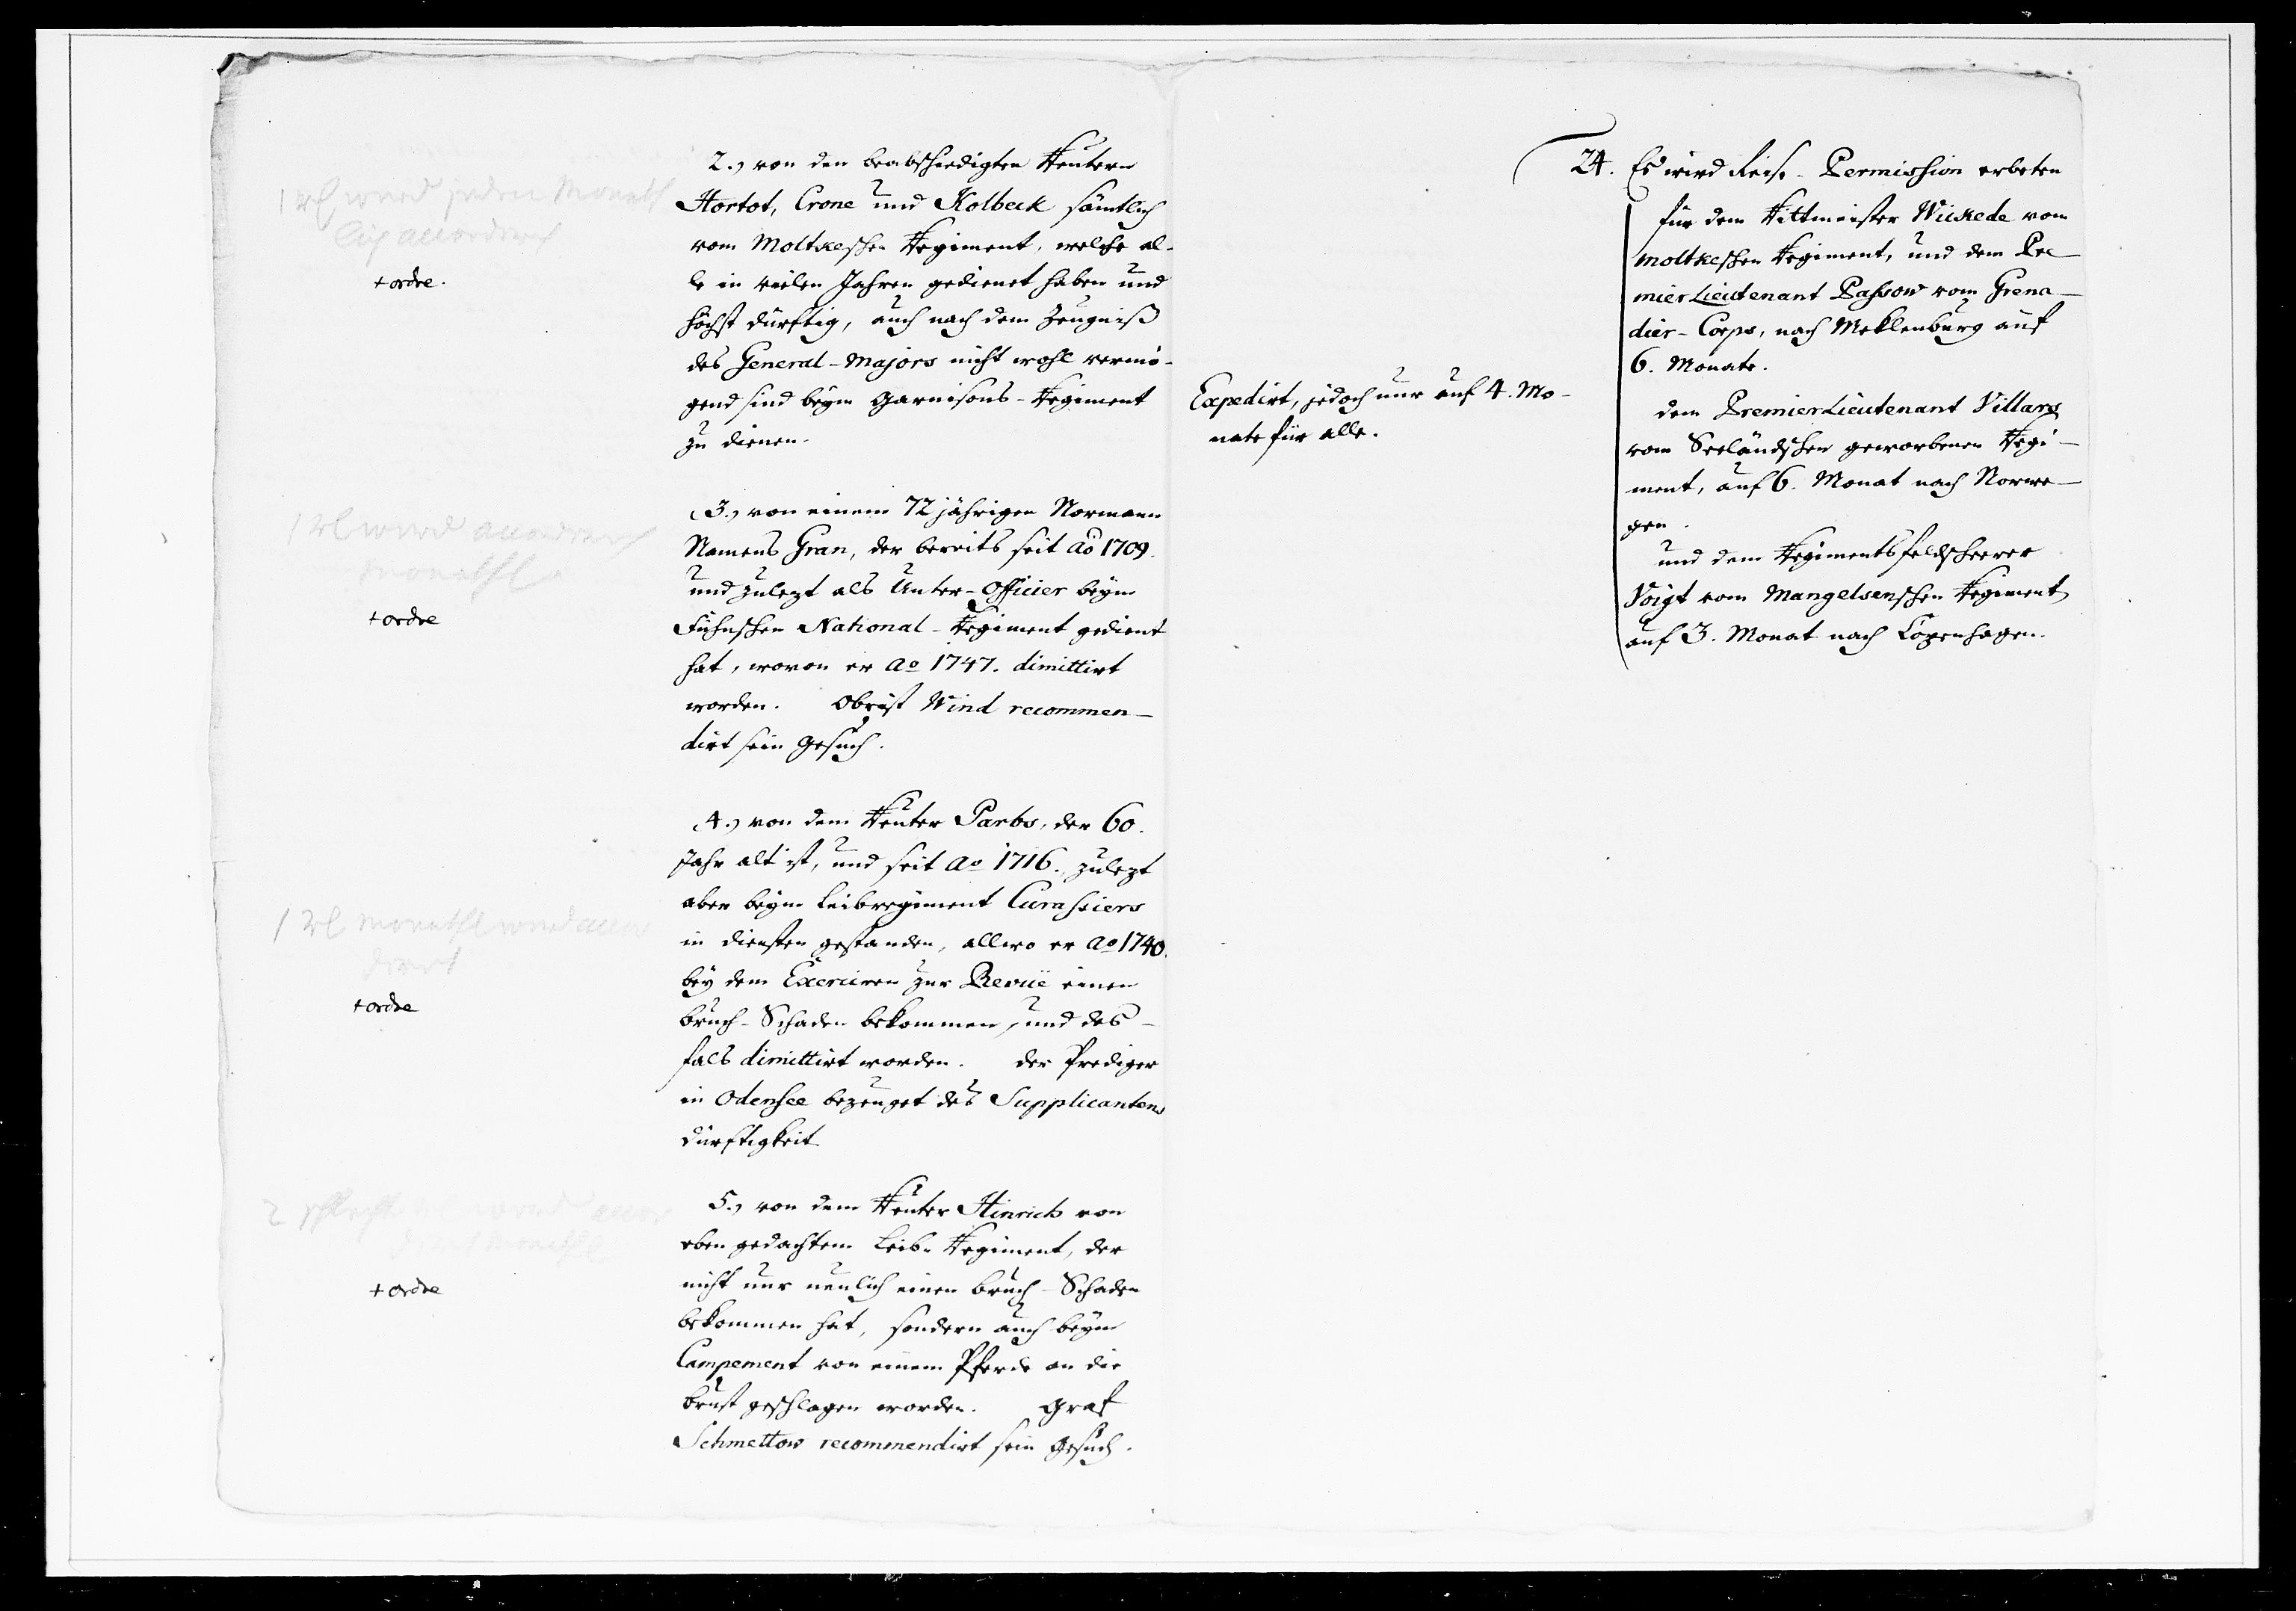 2.) von den beabschiedigten Reutern
Hortot, Crone und Kolbeck sämtlich
vom Moltkeschen Regiment, welche al-
le in vielen Jahren gedienet haben und
höchst dürftig, auch nach dem Zeugniß
des General-Majors nicht wohl vermö-
gend sind beym Garnisons-Regiment
zu dienen.
1 rl wird jeden Monath
accordirt
+ ordre.
3.) von einem 72 jährigen Normann
Namens Gran, der bereits seit Ao 1709.
und zulezt als Unter-Officier beym
Fühnschen National-Regiment gedient
hat, wovon er Ao 1747. dimittirt
worden. Obrist Wind recommen-
dirt sein Gesuch.
1 rl wird accordirt
Monathl
+ ordre
4.) von dem Reuter Parbs, der 60.
Jahr alt ist, und seit Ao 1716. zulezt
aber beym Leibregiment Curassiers
in diensten gestanden, allwo er Ao 1740.
bey dem Exerciren zur Revüe einen
bruch-Schaden bekommen, und des-
fals dimittirt worden. der Prediger
in Odensee bezeuget des Supplicantens
dürftigkeit
1 rl Monathl wird accor
dirt
+ ordre
5.) von dem Reuter Hinrich von
eben gedachtem Leib-Regiment, der
nicht nur neulich einen bruch-Schaden
bekommen hat, sondern auch beym
Campement von einem Pferde an die
brust geschlagen worden. Graf
Schmettow recommendirt sein Gesuch.
2 wird accor
dirt Monathl
+ ordre
24. Es wird Reise-Permission erbeten
für dem Rittmeister Wickede vom
Moltkeschen Regiment, und dem Pre-
mier Lieutenant Passow vom Grena-
dier-Corps, nach Meklenburg auf
6. Monate.
dem Premier Lieutenant Villars
vom Seeländschen geworbenen Regi-
ment, auf 6. Monat nach Norwe-
gen.
und dem Regimentsfeldscheerer
Voigt vom Mangelsenschen Regiment,
auf 3. Monat nach Copenhagen.
Expedirt, jedoch nur auf 4. Mo-
nate für alle.